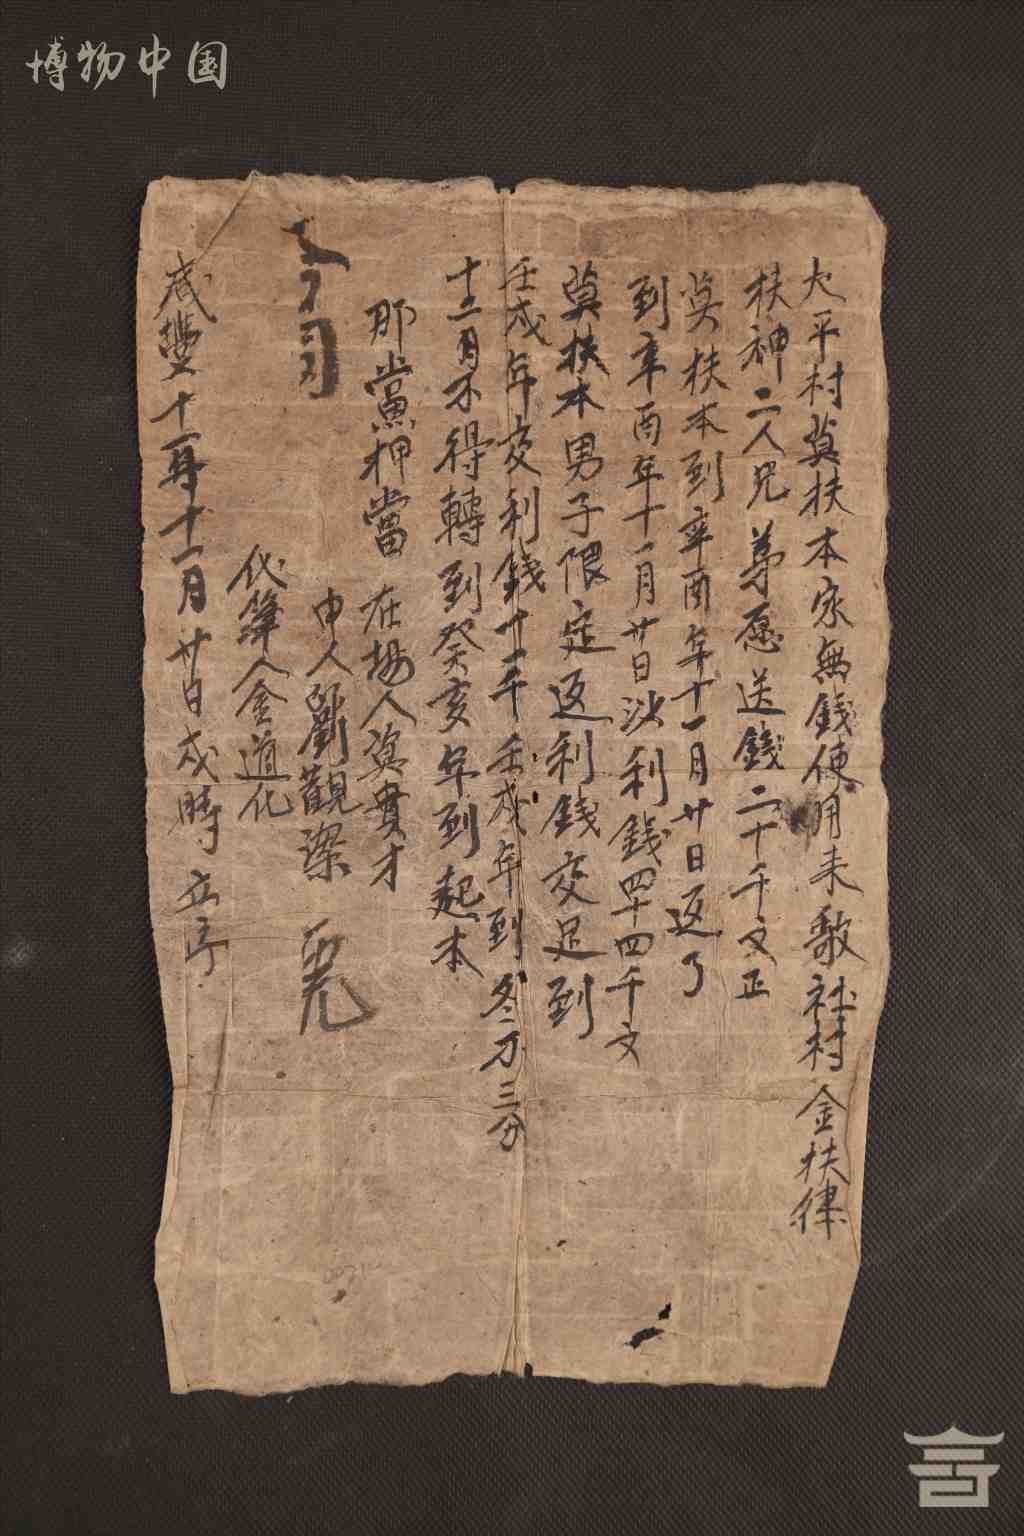 博物中国
大平村莫扶本家無錢使用来敬社村金扶律
扶神二人兄弟愿送錢二十千文正
莫扶本到辛酉年十一月廿日返了
到辛酉年十一月廿日涉利錢四十四千文
莫扶本男子限定返利錢交足到
壬戌年交利錢十一千壬戌年到冬不三分
十二月不得轉到癸亥年到起本
那當押當 在場人莫貴才
合司
中人劉觀深
代筆人金道化
咸豐十一年十一月廿日戌時立字